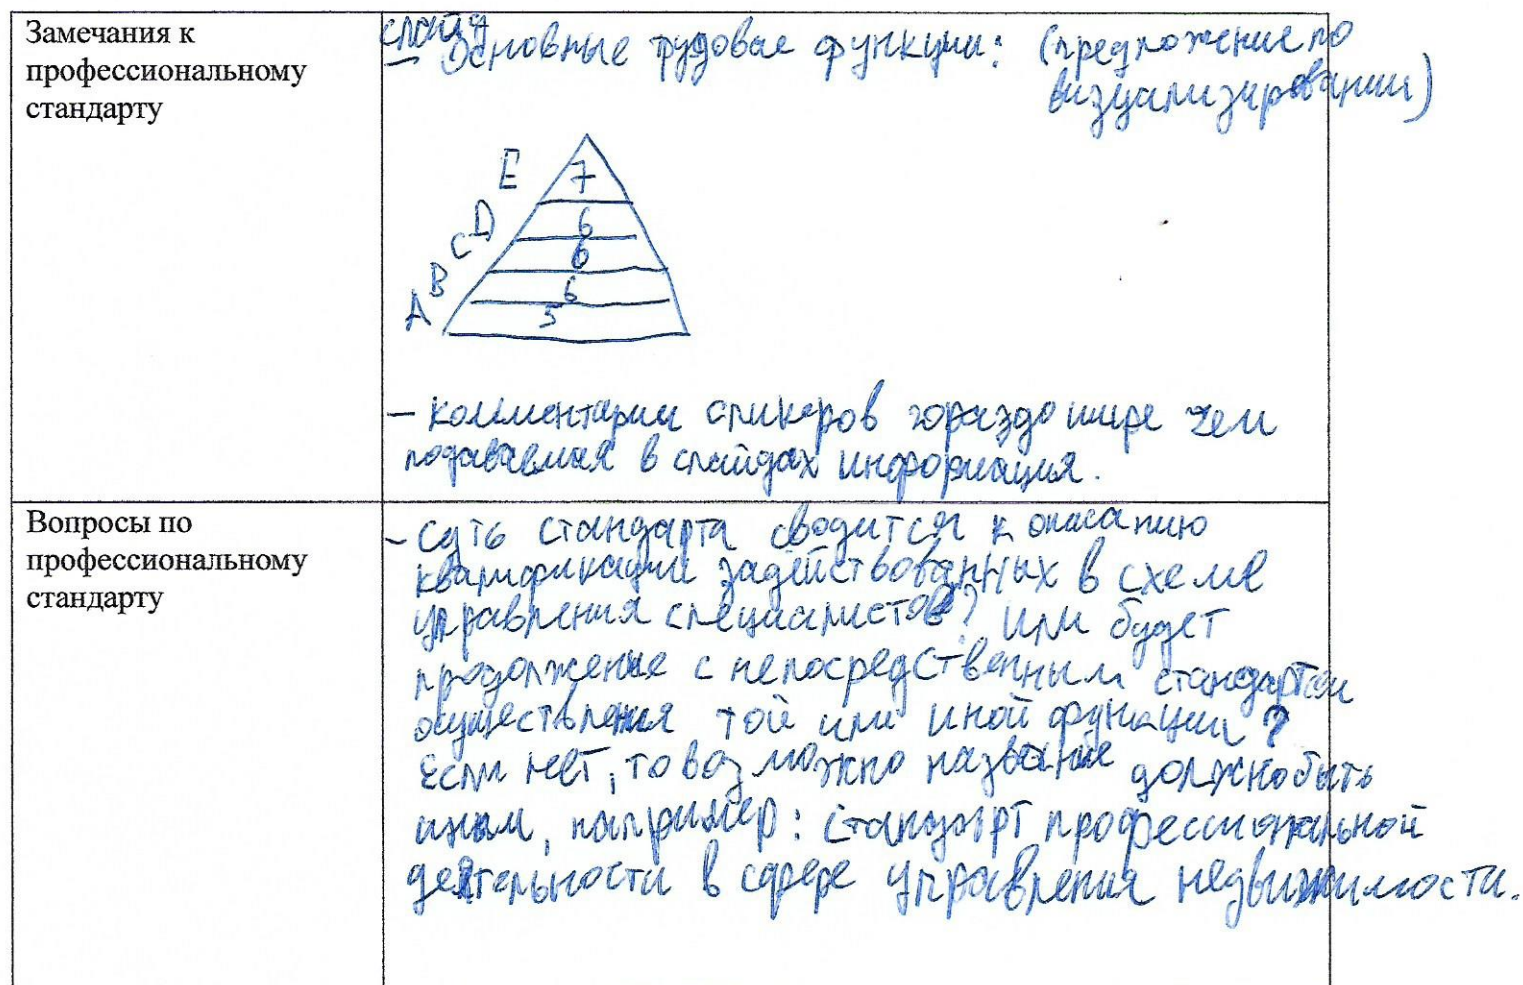 Замечания к
профессиональному
стандарту
слайд
— Основные трудовые функции: (предложение по
визуализировании)
E 7
D 6
C 6
B 6
A 5
— комментарии спикеров гораздо шире чем
подаваемая в слайдах информация.
Вопросы по
профессиональному
стандарту
- суть стандарта сводится к описанию
квалификации задействованных в схеме
управления специалистов? или будет
продолжение с непосредственным стандартом
осуществления той или иной функции?
Если нет, то возможно название должно быть
иным, например: стандарт профессиональной
деятельности в сфере управления недвижимости.